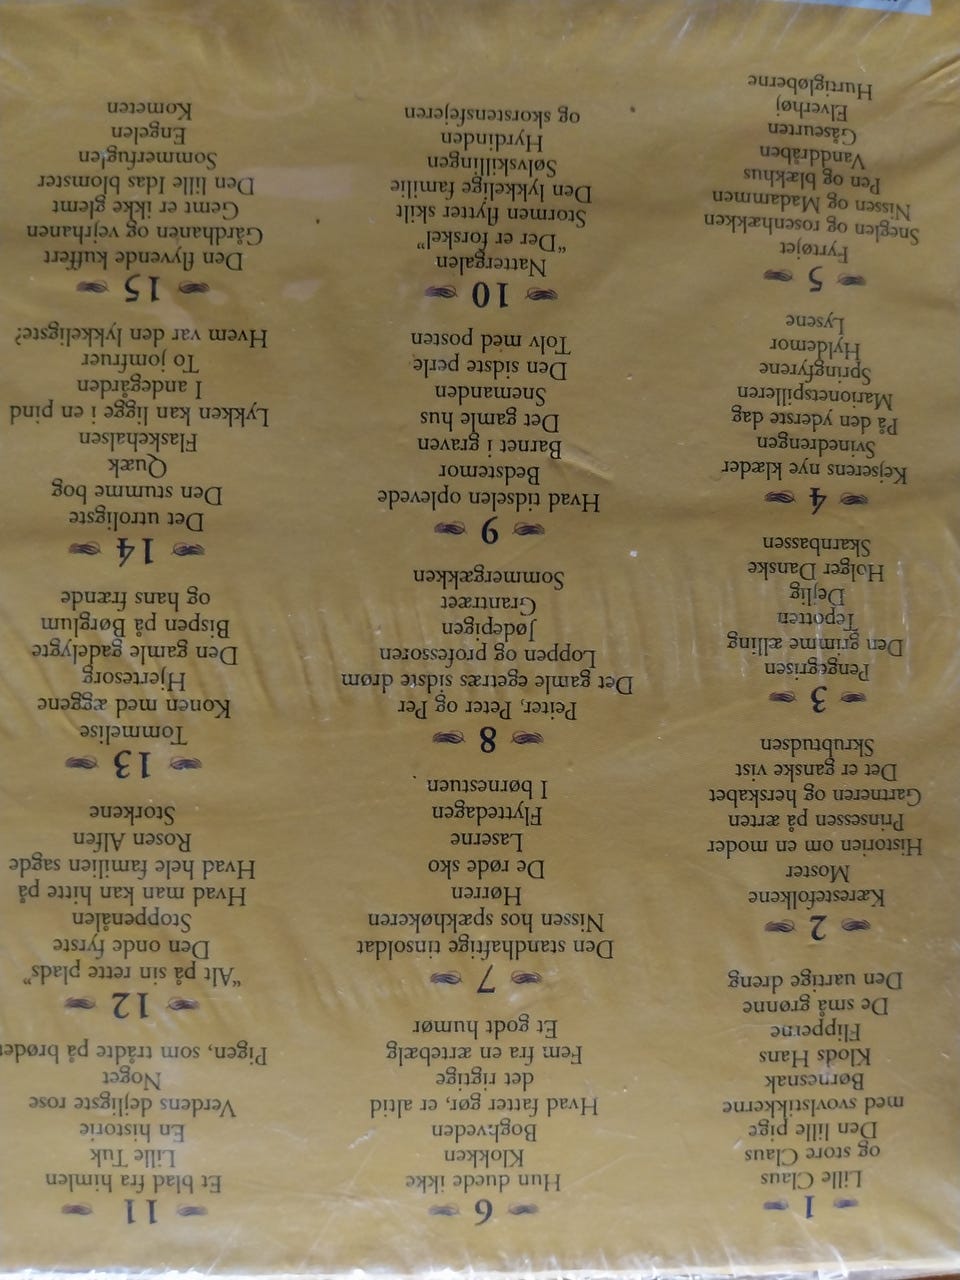 1
Lille Claus
og store Claus
Den lille pige
med svovlstikkerne
Børnesnak
Klods Hans
Flipperne
De små grønne
Den uartige dreng
2
Kærestefolkene
Moster
Historien om en moder
Prinsessen på ærten
Gartneren og herskabet
Det er ganske vist
Skrubtudsen
3
Pengegrisen
Den grimme ælling
Tepotten
Dejlig
Holger Danske
Skarnbassen
4
Kejserens nye klæder
Svinedrengen
På den yderste dag
Marionetspilleren
Springfyrene
Hyldemor
Lysene
5
Fyrtøjet
Sneglen og rosenhækken
Nissen og Madammen
Pen og blækhus
Vanddråben
Gåseurten
Elverhøj
Hurtigløberne
6
Hun duede ikke
Klokken
Boghveden
Hvad fatter gør, er altid
det rigtige
Fem fra en ærtebælg
Et godt humør
7
Den standhaftige tinsoldat
Nissen hos spækhøkeren
Hørren
De røde sko
Laserne
Flyttedagen
I børnestuen
8
Peiter, Peter og Per
Det gamle egetræs sidste drøm
Loppen og professoren
Jødepigen
Grantræet
Sommergækken
9
Hvad tidselen oplevede
Bedstemor
Barnet i graven
Det gamle hus
Snemanden
Den sidste perle
Tolv med posten
10
Nattergalen
"Der er forskel"
Stormen flytter skilt
Den lykkelige familie
Sølvskillingen
Hyrdinden
og skorstensfejeren
11
Et blad fra himlen
Lille Tuk
En historie
Verdens dejligste rose
Noget
Pigen, som trådte på brødet
12
"Alt på sin rette plads"
Den onde fyrste
Stoppenålen
Hvad man kan hitte på
Hvad hele familien sagde
Rosen Alfen
Storkene
13
Tommelise
Konen med æggene
Hjertesorg
Den gamle gadelygte
Bispen på Børglum
og hans frænde
14
Det utroligste
Den stumme bog
Quæk
Flaskehalsen
Lykken kan ligge i en pind
I andegården
To jomfruer
Hvem var den lykkeligste?
15
Den flyvende kuffert
Gårdhanen og vejrhanen
Gemt er ikke glemt
Den lille Idas blomster
Sommerfuglen
Engelen
Kometen